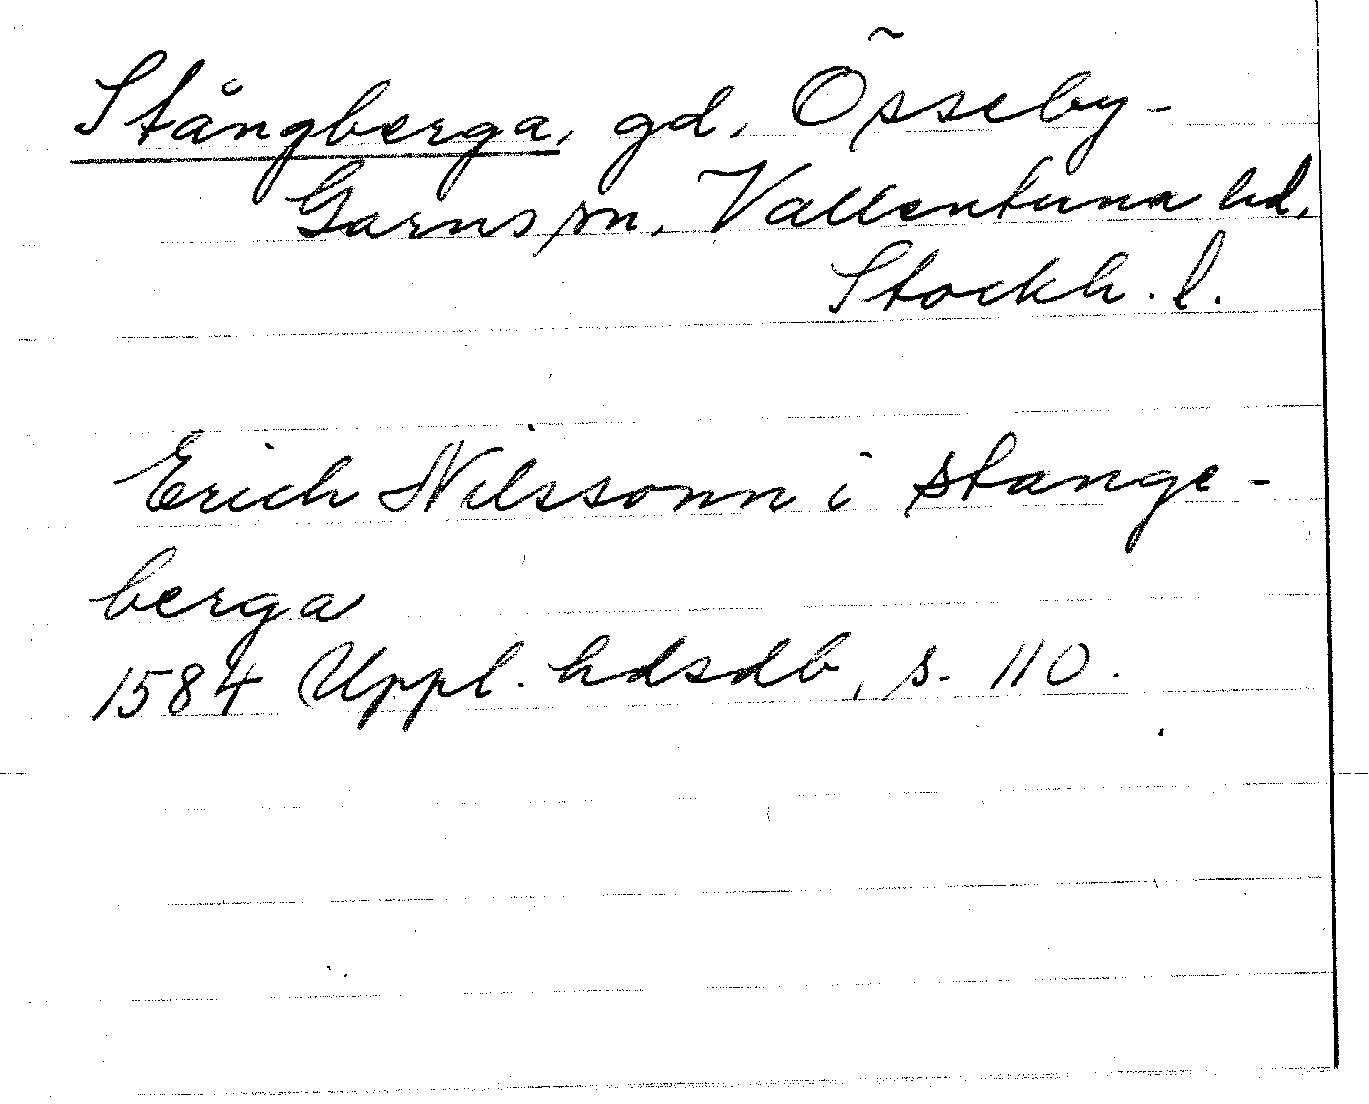 Stångberga, gd, Össeby-
Garns sn, Vallentuna hd,
Stockh. l.
Erich Nilssonn i stange-
berga
1584 Uppl. hdsdb, s. 110.